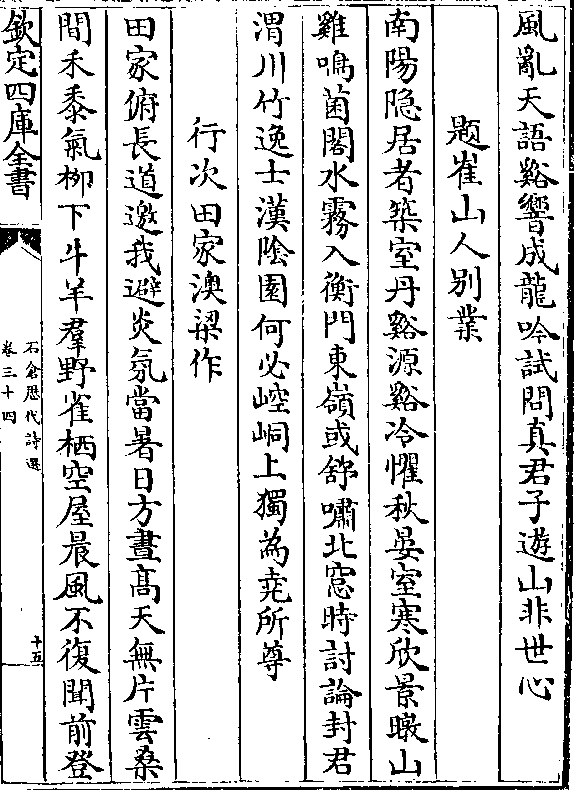 風亂天語谿響成龍吟試問真君子遊山非世心
題崔山人别業
南陽隐居者築室丹谿源谿冷懼秋晏室寒欣景暾山
雞鳴菌閣水霧入衡門東嶺或舒嘯北窓時討論封君
渭川竹逸士漢陰園何必崆峒上獨為尭所尊
行次田家澳梁作
田家俯長道邀我避炎氛當暑日方晝髙天無片雲桑
間禾黍氣栁下牛羊羣野雀栖空屋晨風不復聞前登
欽定四庫全書
石倉歴代詩選
卷三十四
十五